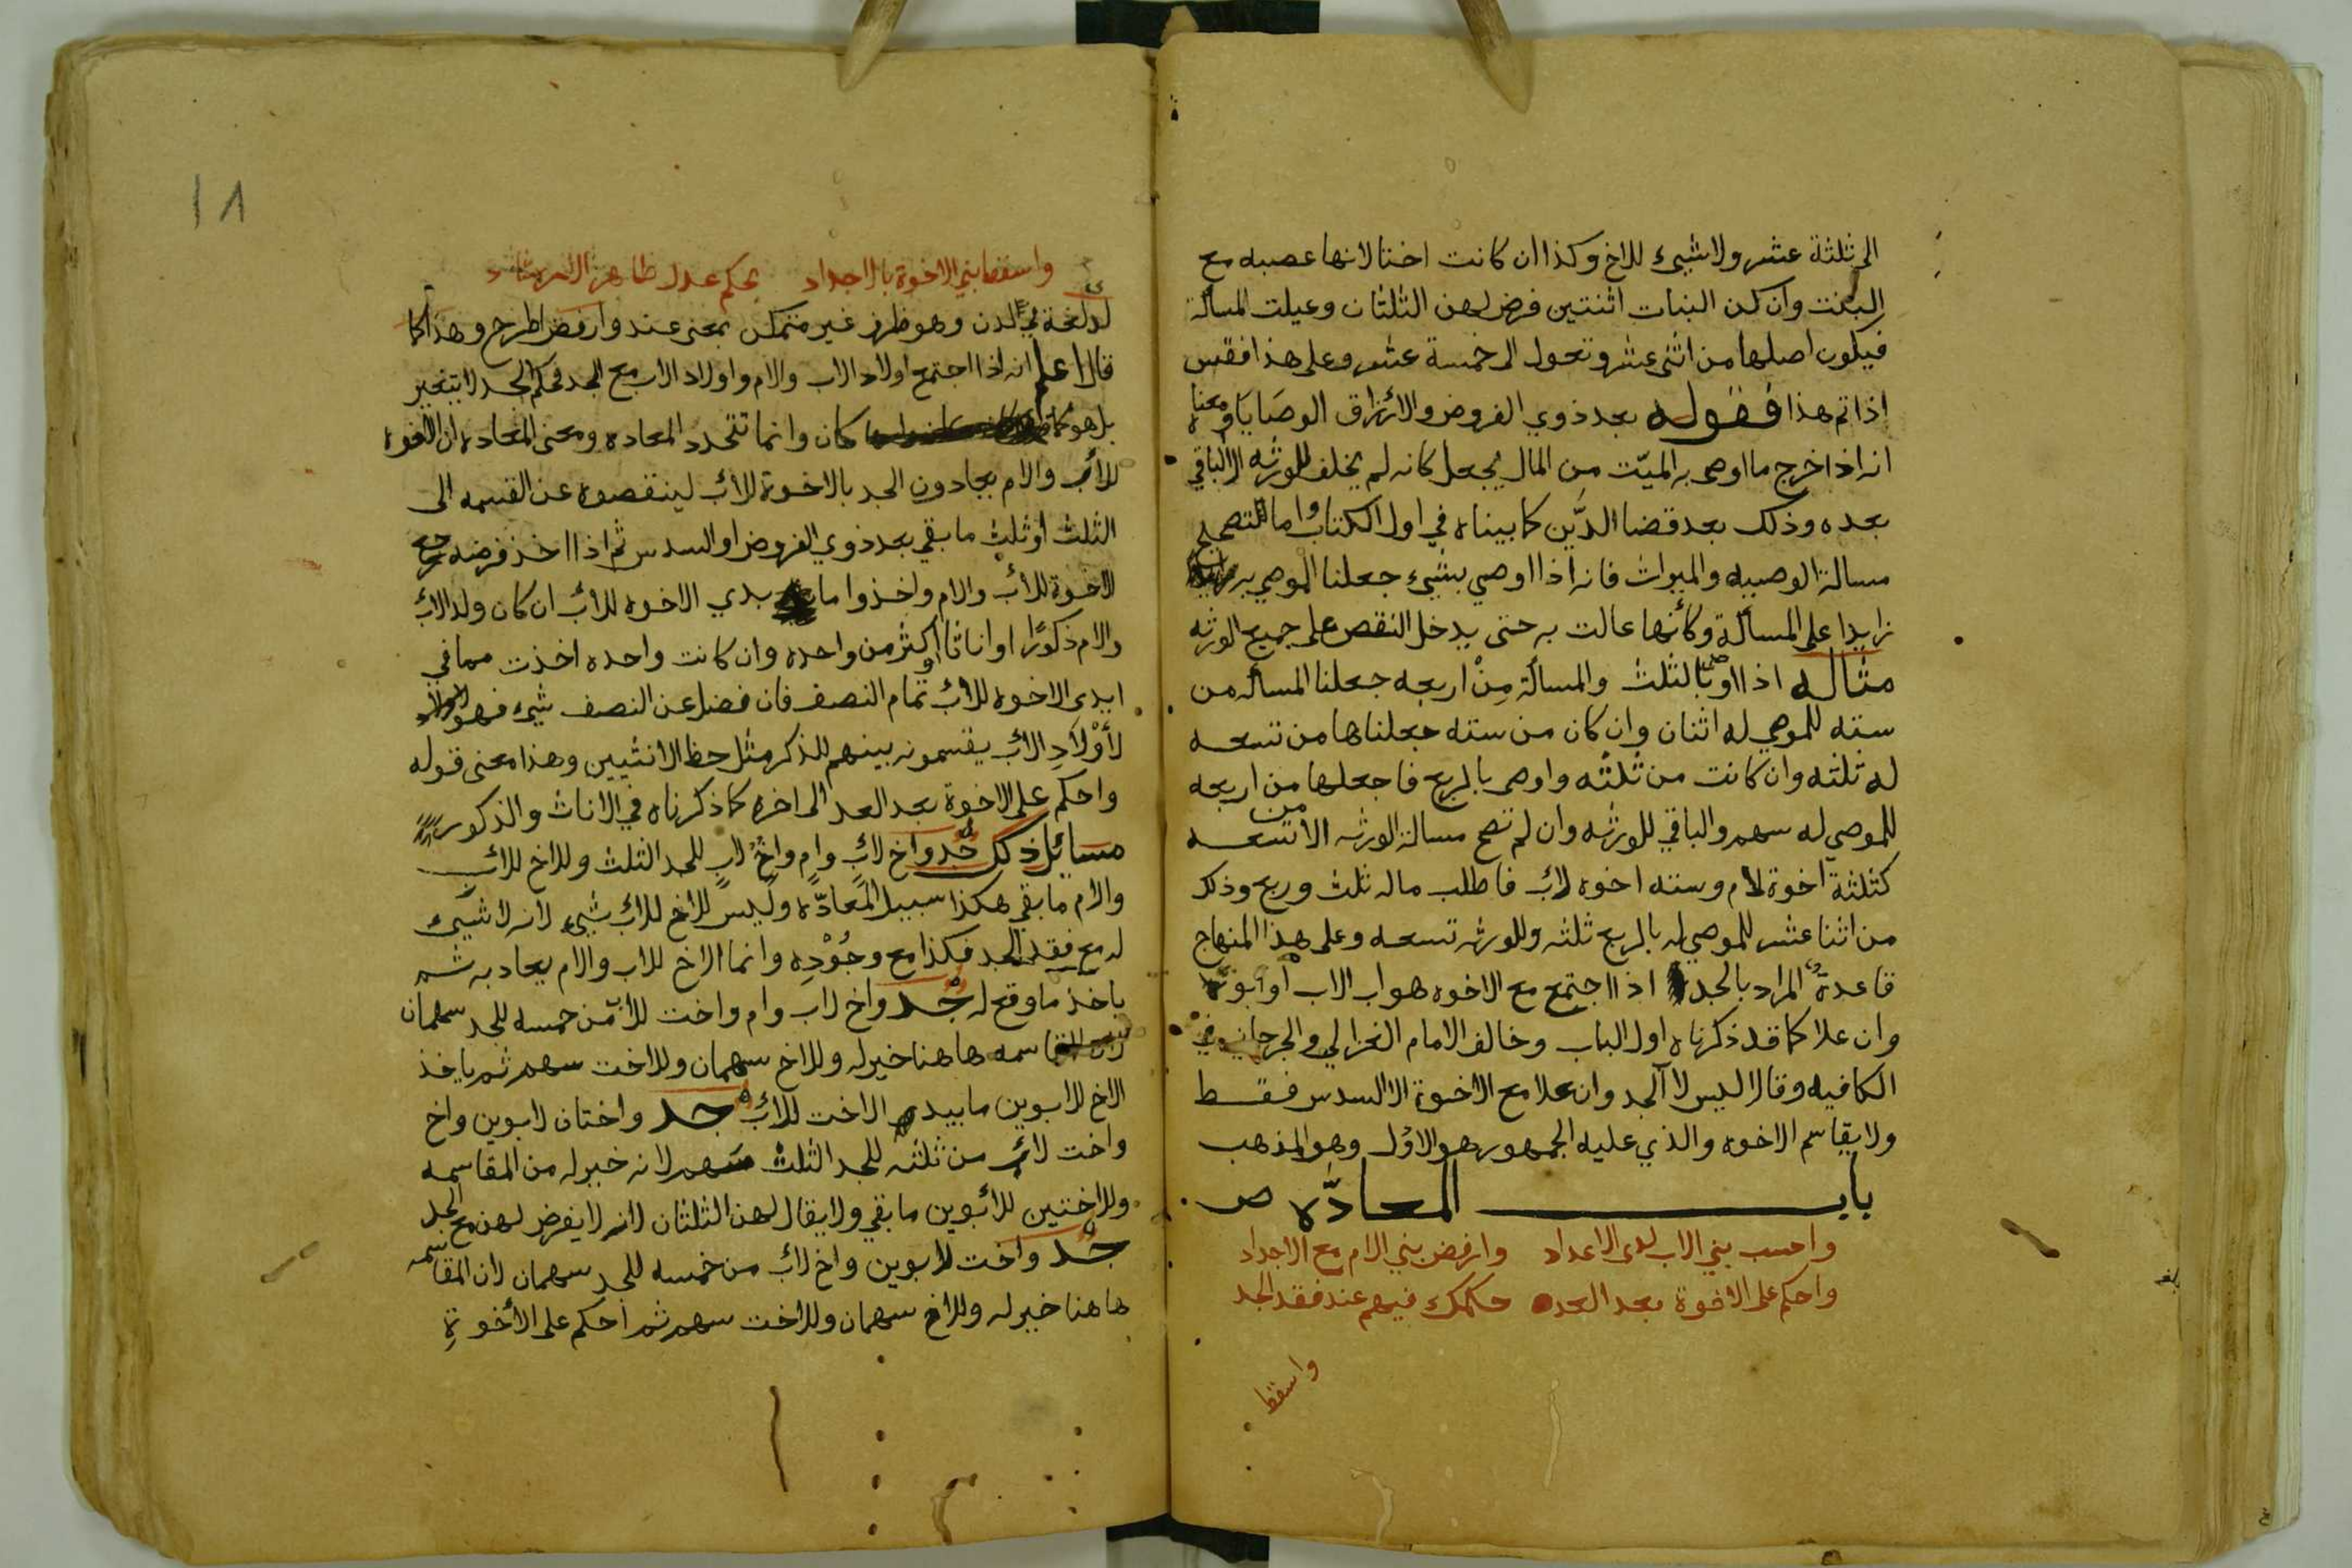 الى ثلثة عشر ولا شيء للاخ وكذا ان كانت اختا لانها عصبه مع
البنت وان كن البنات اثنتين فرض لهن الثلثان وعيلت المسألة
فيكون اصلها من اثنى عشر وتعول الى خمسة عشر وعلى هذا فقس
اذا تم هذا فقوله بعد ذوي الفروض والارزاق الوصايا ومعناه
انه اذا خرج ما اوصى به الميّت من المال يجعل كانه لم يخلف للورثه الا الباقي
بعده وذلك بعد قضا الدَّين كما بيناه في اول الكتاب واما التصحيح
مسالة الوصيه والميراث فانه اذا اوصي بشيء جعلنا الموصي به
زايدا على المسألة وكأنها عالت به حتى يدخل النقص على جميع الورثه
مثاله اذا اوصى بالثلث والمسألة مِنْ اربعه جعلنا المسأله من
سته للموصي له اثنان وان كان من سته جعلناها من تسعه
له ثلثه وان كانت من ثلثه واوصى بالربع فاجعلها من اربعه
للموصي له سهم والباقي للورثه وان لم تصح مسالة الورثه الا من تسعه
كثلثة اخوة لام وسته اخوه لاب فاطلب ماله ثلث وربع وذلك
من اثنا عشر للموصي له بالربع ثلثه وللورثه تسعه وعلى هذا المنهاج
قاعدة المراد بالجد اذا اجتمع مع الاخوه هو اب الاب او ابوه
وان علا كما قد ذكرناه اول الباب وخالف الامام الغزالي والجرجاني في
الكافيه وقالا ليس لا الجد وان علا مع الاخوة الا السدس فقط
ولا يقاسم الاخوه والذي عليه الجمهور هو الاوّل وهو المذهب
باب المعادّه ص
واحسب بني الاب لدى الاعداد وارفض بني الام مع الاجداد
واحكم على الاخوة بعد العد حكمك فيهم عند فقد الجد
واسقط
١٨
واسقط بني الاخوة بالاجداد بحكم عدل ظاهر الارشاد
لدى لغة في لدن وهو ظرف غير متمكن بمعنى عند وارفض اطرح وهذا كما
قال اعلم انه اذا اجتمع اولاد الاب والام واولاد الاب مع الجد فحكم الجد لا يتغير
بل هو كما كان وانما تتجدد المعاده ومعنى المعاده ان الاخوة
للاب والام يعادون الجد بالاخوة للاب لينقصوه عن القسمه الى
الثلث أو ثلث ما بقي بعد ذوي الفروض او السدس ثم اذا اخذ فرضه رجع
الاخوة للاب والام واخذوا ما بيدي الاخوه للاب ان كان ولد الاب
والام ذكورًا او اناثا اكثر من واحده وان كانت واحده اخذت مما في
ايدي الاخوه للاب تمام النصف فان فضل عن النصف شيء فهو
لأوْلَادِ الاب يقسمونه بينهم للذكر مثل حظ الانثيين وهذا معنى قوله
واحكم على الاخوة بعد العد الى اخره كما ذكرناه في الاناث والذكور
مسائل ذلك جد واخ لاب وام واخ لاب للجد الثلث وللاخ للاب
والام ما بقي هكذا سبيل المعادّه وليس للاخ للاب شيء لانه لا شيء
له مع فقد الجد فكذا مع وجُوْدِه وانما الاخ للاب والام يعاد به ثم
ياخذ ما وقع له جد واخ لاب وام واخت للاب من خمسه للجد سهمان
لان المقاسمه هاهنا خير له وللاخ سهمان وللاخت سهم ثم ياخذ
الاخ للابوين ما بيد الاخت للاب جد واختان لابوين واخ
واخت لاب من ثلثه للجد الثلث سهم لانه خير له من المقاسمه
وللاختين للابوين ما بقي ولا يقال لهن الثلثان لانه لا يفرض لهن مع الجد
جد واخت لابوين واخ لاب من خمسه للجد سهمان لان المقاسمه
هاهنا خير له وللاخ سهمان وللاخت سهم ثم احكم على الأخوةِ